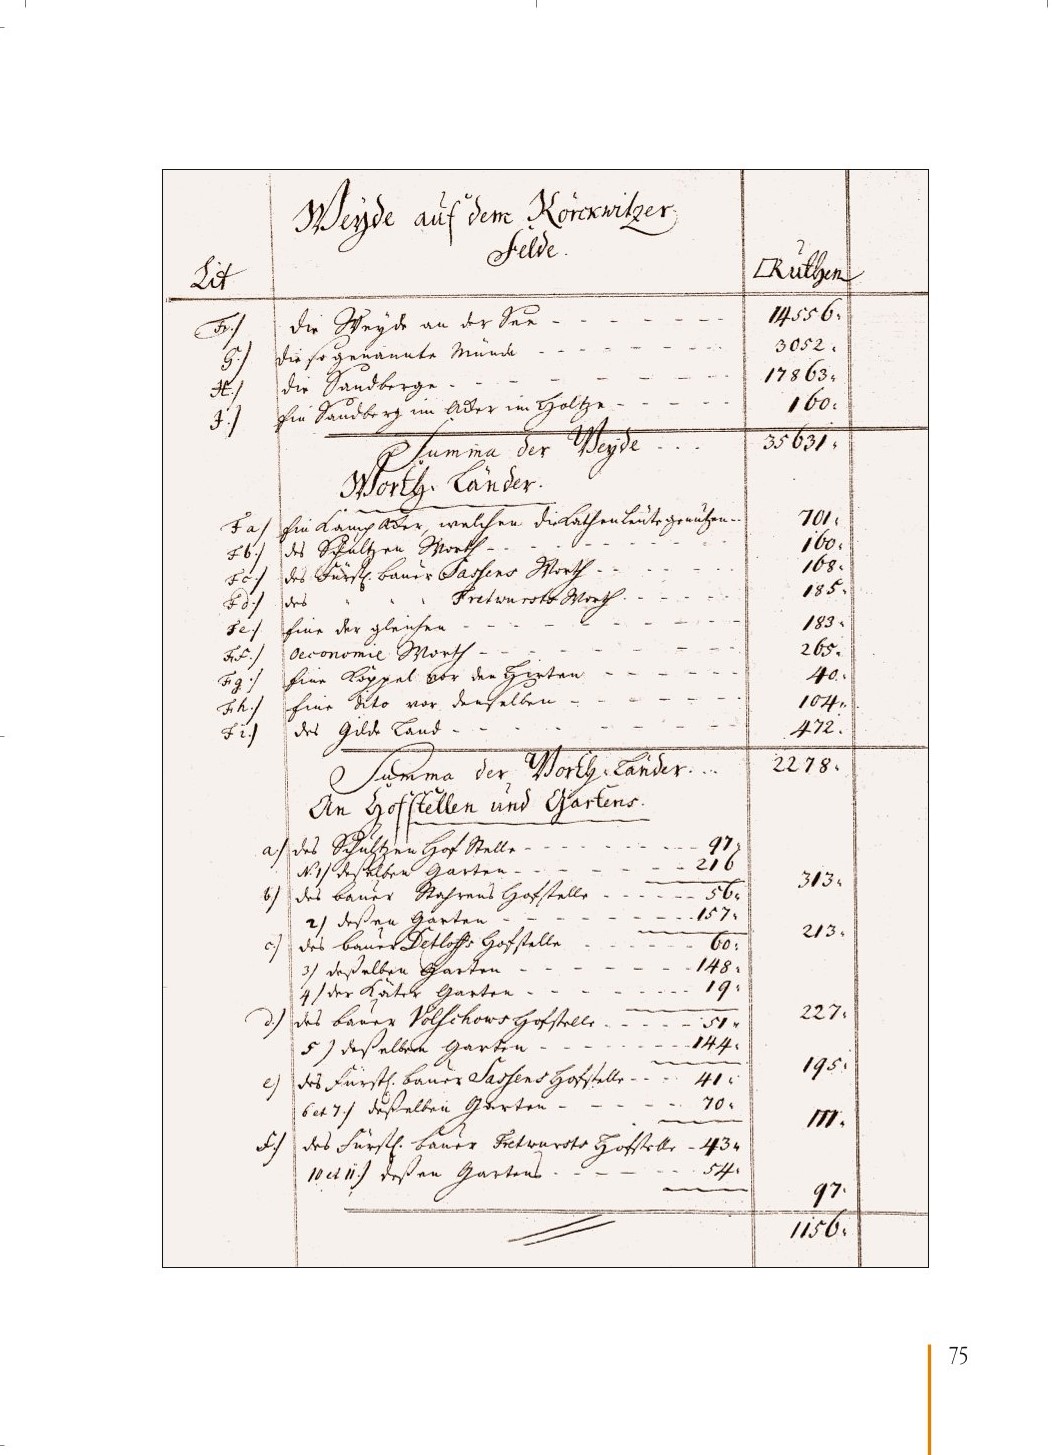 Weyde auf dem Körckwitzer
Felde.
Lit
□Ruthen
F./ die Weyde an der See - - - - - - 14556.
G./ die so genannte Münde - - - - - - 3052.
H./ die Sandberge - - - - - - 17863.
J./ Ein Sandberg im Acker im Holtze - - - - - 160.
Summa der Weyde . . . 35631.
Worth. Länder.
Fa/ Ein Kamp Acker, welchen die Kathenleute genützen - - 701.
Fb./ des Schultzen Worth - - - - - - 160.
Fc./ des Fürstl. bauer Sassens Worth - - - - - 168.
Fd./ des " " " Fretwursts Worth - - - - - 185.
Fe./ Eine der gleichen - - - - - - 183.
Ff./ oeconomie Worth - - - - - - 265.
Fg./ Eine Koppel vor den Hirten - - - - - 40.
Fh./ Eine dito vor denselben - - - - - 104.
Fi./ des Gilde Land - - - - - - 472.
Summa der Worth. Länder. . . . 2278.
An Hofstellen und Gartens.
a./ des Schultzen Hof Stelle - - - - - - 97.
N 1/ deßelben Garten - - - - - 216
313.
b/ des bauer Stahrens Hofstelle - - - - - 56.
2/ deßen Garten - - - - - - 157.
213.
c/ des bauer Detloffs Hofstelle - - - - - 60.
3/ deßelben Garten - - - - - 148.
4/ der Käter Garten - - - - - 19.
227.
d./ des bauer Völschows Hofstelle - - - - - 51.
5/ deßelben Garten - - - - - 144.
195.
e/ des Fürstl. bauer Sassens Hofstelle - - - 41.
6 et 7./ deßelben Garten - - - - - 70.
111.
F./ des Fürstl. bauer Fretwursts Hofstelle - 43.
10 et 11./ deßen Gartens - - - - - 54.
97.
1156.
75